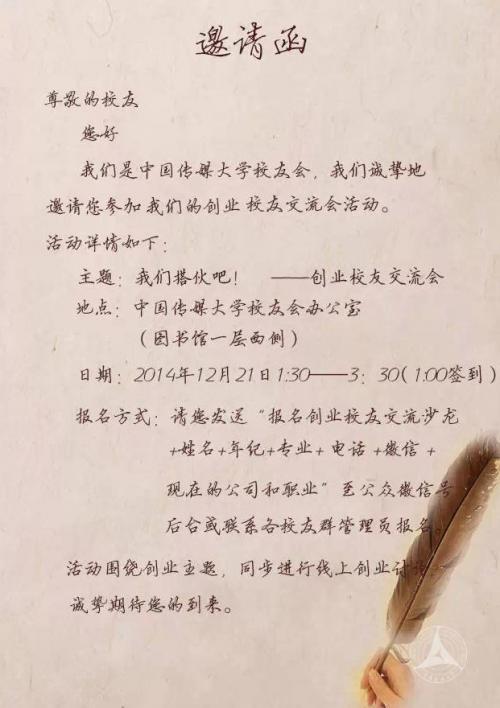 邀请函
尊敬的校友
您好
我们是中国传媒大学校友会，我们诚挚地
邀请您参加我们的创业校友交流会活动。
活动详情如下：
主题：我们搭伙吧！ ——创业校友交流会
地点：中国传媒大学校友会办公室
（图书馆一层西侧）
日期：2014年12月21日1:30——3：30(1:00签到)
报名方式：请您发送“报名创业校友交流沙龙
+姓名+年纪+专业+电话+微信+
现在的公司和职业”至公众微信号
后台或联系各校友群管理员报名。
活动围绕创业主题，同步进行线上创业讨
诚挚期待您的到来。